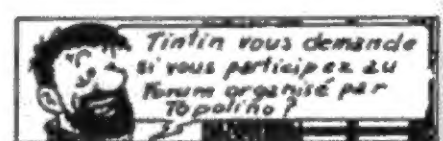 Tintin vous demande
si vous participez au
Forum organisé par
Topolino ?